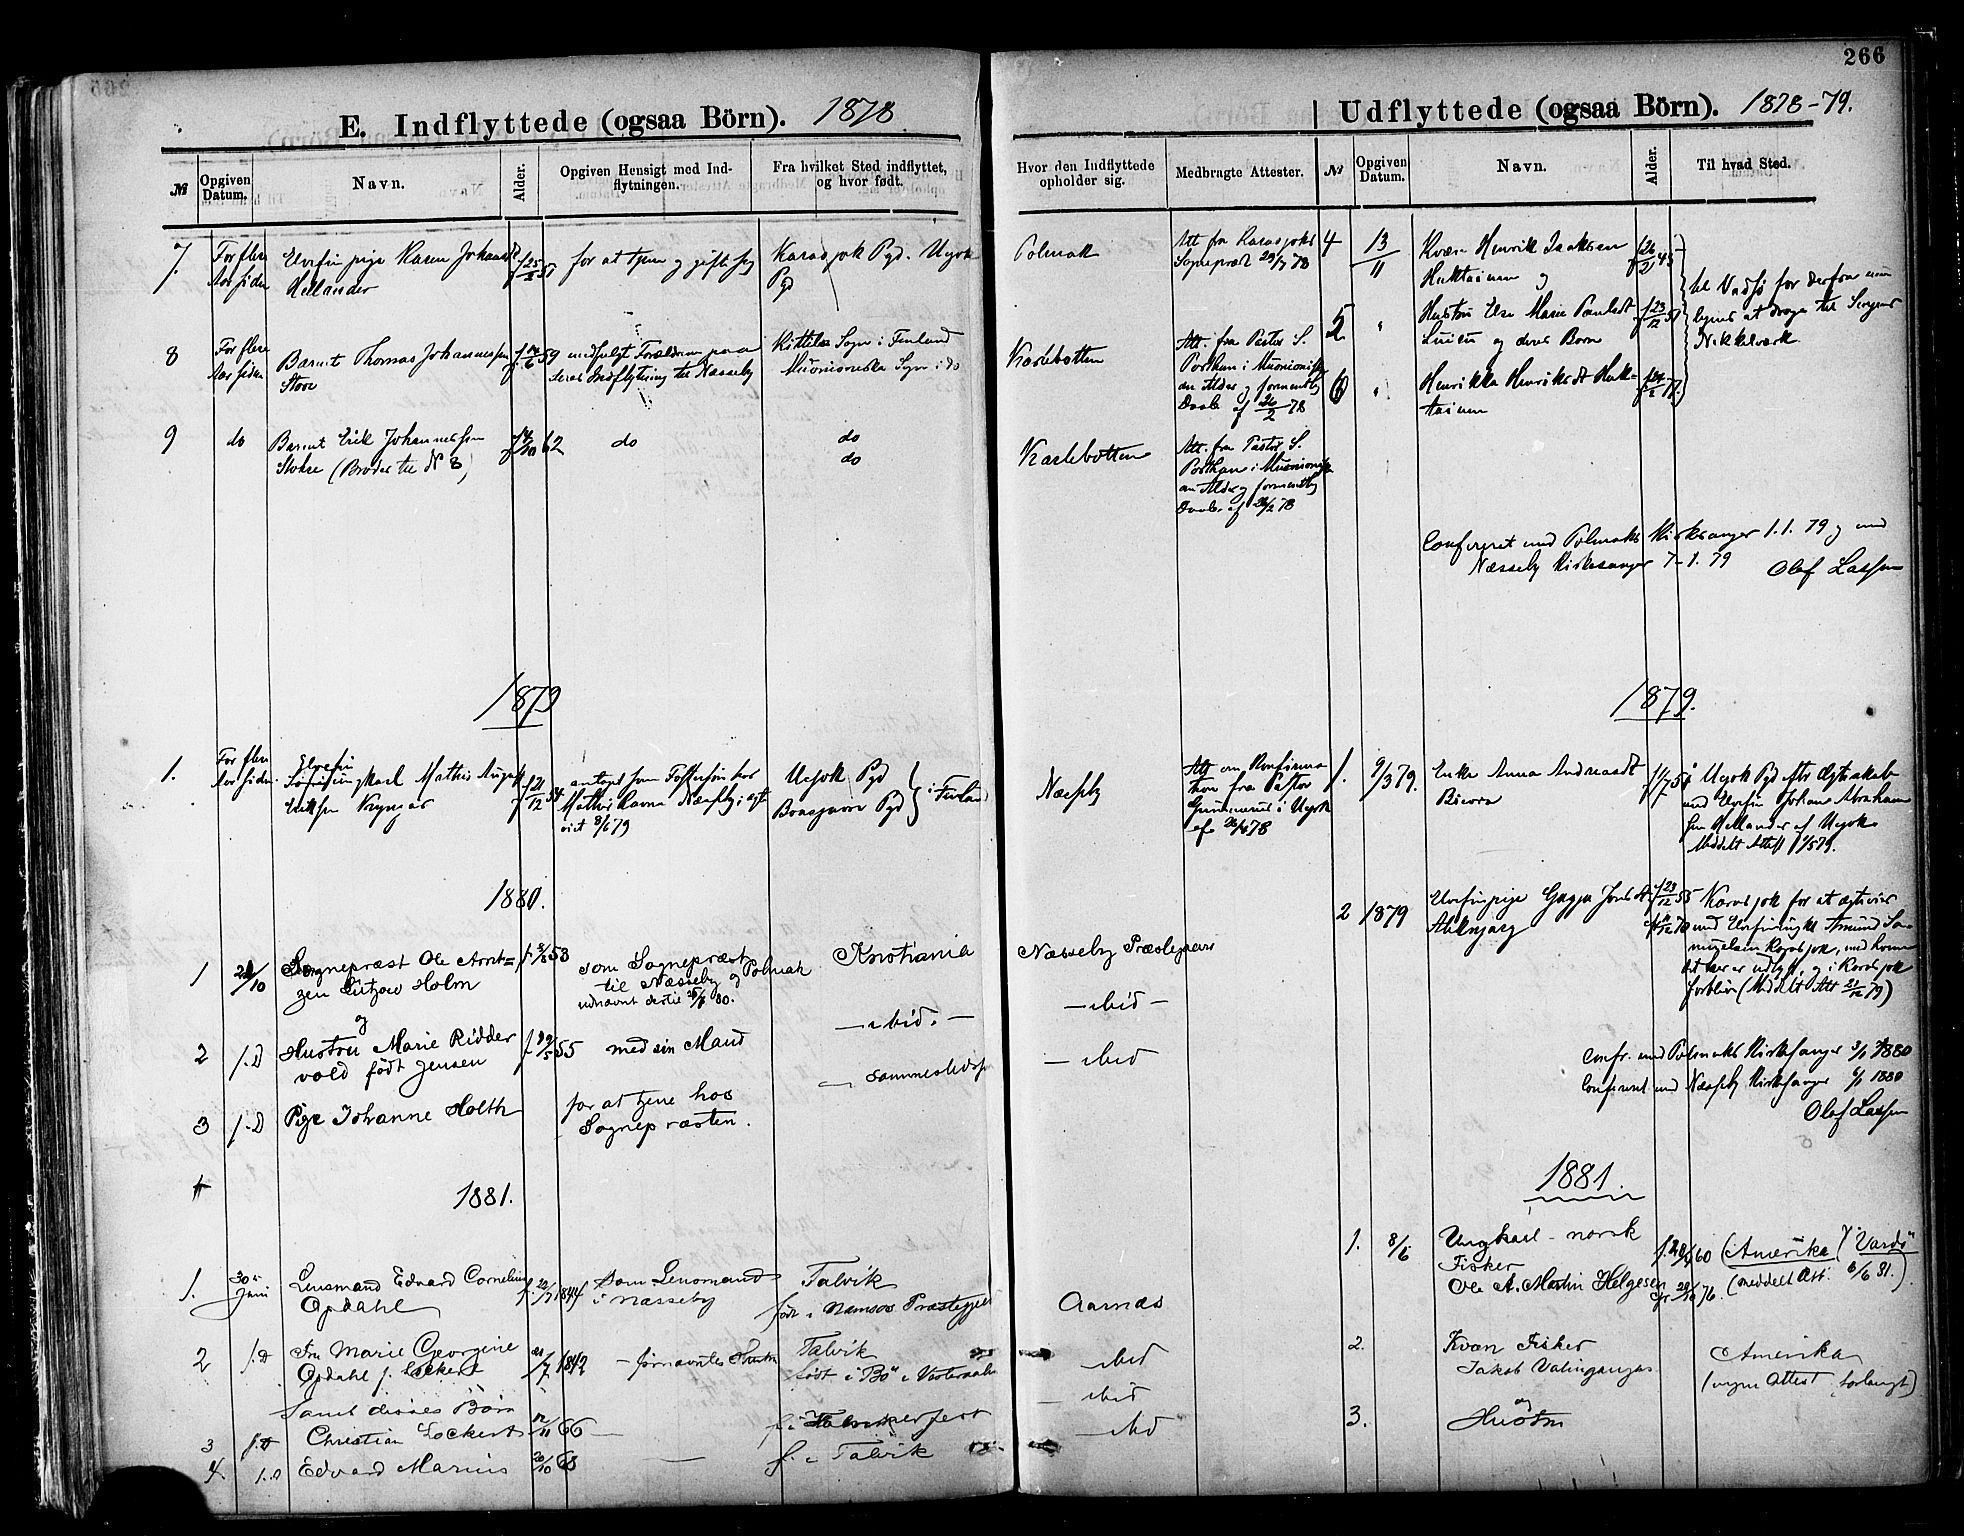 266
E. Indflyttede (ogsaa Börn). 1878.
№
Opgiven Datum.
Navn.
Alder.
Opgiven Hensigt med Indflytningen.
Fra hvilket Sted indflyttet, og hvor født.
Hvor den Indflyttede opholder sig.
Medbragte Attester.
7.
For flere
Aar siden
Elvefin pige Karen Johansdt
Hellander
f 25/ 51
for at tjene og gifte sig
Karasjok Pgd. Utsjok
Pgd
Polmak
Att fra Karasjoks
Sognepræst 29/7 78
8
For flere
Aar siden
Barnet Thomas Johannessen
f. /6 59
medfulgt Forældrene paa
deres Indflytning til Næsseby
Kittila Sogn i Finland
Muonioniska Sogn i do
Karlebotten
Att. fra Pastor S.
Porthan i Muonioniska
om Alder og formentlig
Daab af 26/2 78
9
do
Barnet Erik Johannessen
(Broder til N 8)
/10 62
do
do
do
Karlebotten
Att. fra Pastor S.
Porthan i Muonioniska
om Alder og formentlig
Daab af 26/2 78
1879
1.
For flere
Aar siden
Elvefin
Mathis August
Eriksen
f 21/12 54
antaget som Fostersøn hos
Mathis Ravna Næsseby i
8/6 79
Utsjok Pgd
Pgd
i Finland
Næsseby
Att om Konfirma
tion fra Pastor
i Utsjok
af 78
1880.
1
/10
Sognepræst Ole Arnt=
zen Lützow Holm
og
f. /8 53
som Sognepræst
til Næsseby og Polmak
udnævnt dertil 80.
Kristiania
Næsseby Præstegaard
2
s.D
Hustru Marie Ridder
vold født Jensen
f 29/5 55
med sin Mand
— ibid. —
— ibid —
3
s.D
Pige Johanne Holth
for at tjene hos
Sognepræsten.
— sammesteds
— ibid
1881.
1.
30te
Juni
Lensmand Edvard Cornelius
Opdahl
1844
Som Lensmand
i Næsseby
Talvik
født i Namsos Præstegjeld
Aarnæs
2
s.D
Fru Marie Georgine
Opdahl f. Lockert
/7 1842
— førnævntes Hustru
Talvik
født i Bö i Vesteraalen
— ibid
Samt disses Börn
— ibid
3
s.D
Christian Lockert
12/11 66
—
f. i Hammerfest
— ibid
4.
s.D
Edvard Marius
20/10 68
—
f. i Talvik
Udflyttede (ogsaa Börn). 1878-79.
№
Opgiven Datum.
Navn.
Alder.
Til hvad Sted.
4
13/11
Kvæn Henrik Isaksen
og
f 26/2 45
til Vadsö for derfra
at drage til Senjens
Nikkelværk
5
"
Hustru Else Marie Paulsdt
og deres Barn
f 23/12 51
6
"
Henrikka Henriksdt
77.
Confereret med Polmaks Kirkesanger 1.1. 79 og med
Næsseby Kirkesanger 7-1. 79
Olaf Lassen
1879.
1.
9/3 79.
Enke Anna Andreasdt
Utsjok Pgd efter Ægteskab
med Elvefin Johan Abraham
sen Hellander af Utsjok
Meddelt Attest 79.
2
1879
Elvefinpige Gagga Jonsdt.
f 29/12 55
Karasjok for at ægtevies
med Amund Sa-
muelsen Karasjok, med hvem
det her er udlyst, og i Karasjok
forbliver (Meddelt Att 21/12 79)
Confr. med Polmaks Kirkesanger 1880
Confereret med Næsseby Kirkesanger 6/1 1880
Olaf Lassen
1881.
1.
8/6
Ungkarl - norsk
Fisker
Ole A. Martin Helgesen
60
76.
(Amerika) "Vardö"
(meddelt Att. 8/6 81.)
2.
Kvæn Fisker
Jakob
og
Amerika
(ingen Attest forlangt)
3.
Hustru